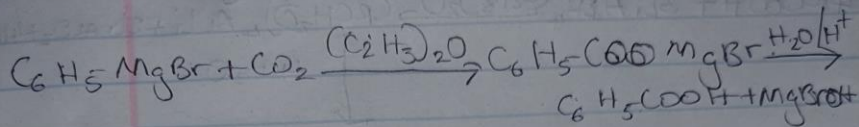 C₆H₅MgBr + CO₂ (C₂H₃)₂O→ C₆H₅COO MgBr H₂O/H⁺→
C₆H₅COOH + MgBrOH